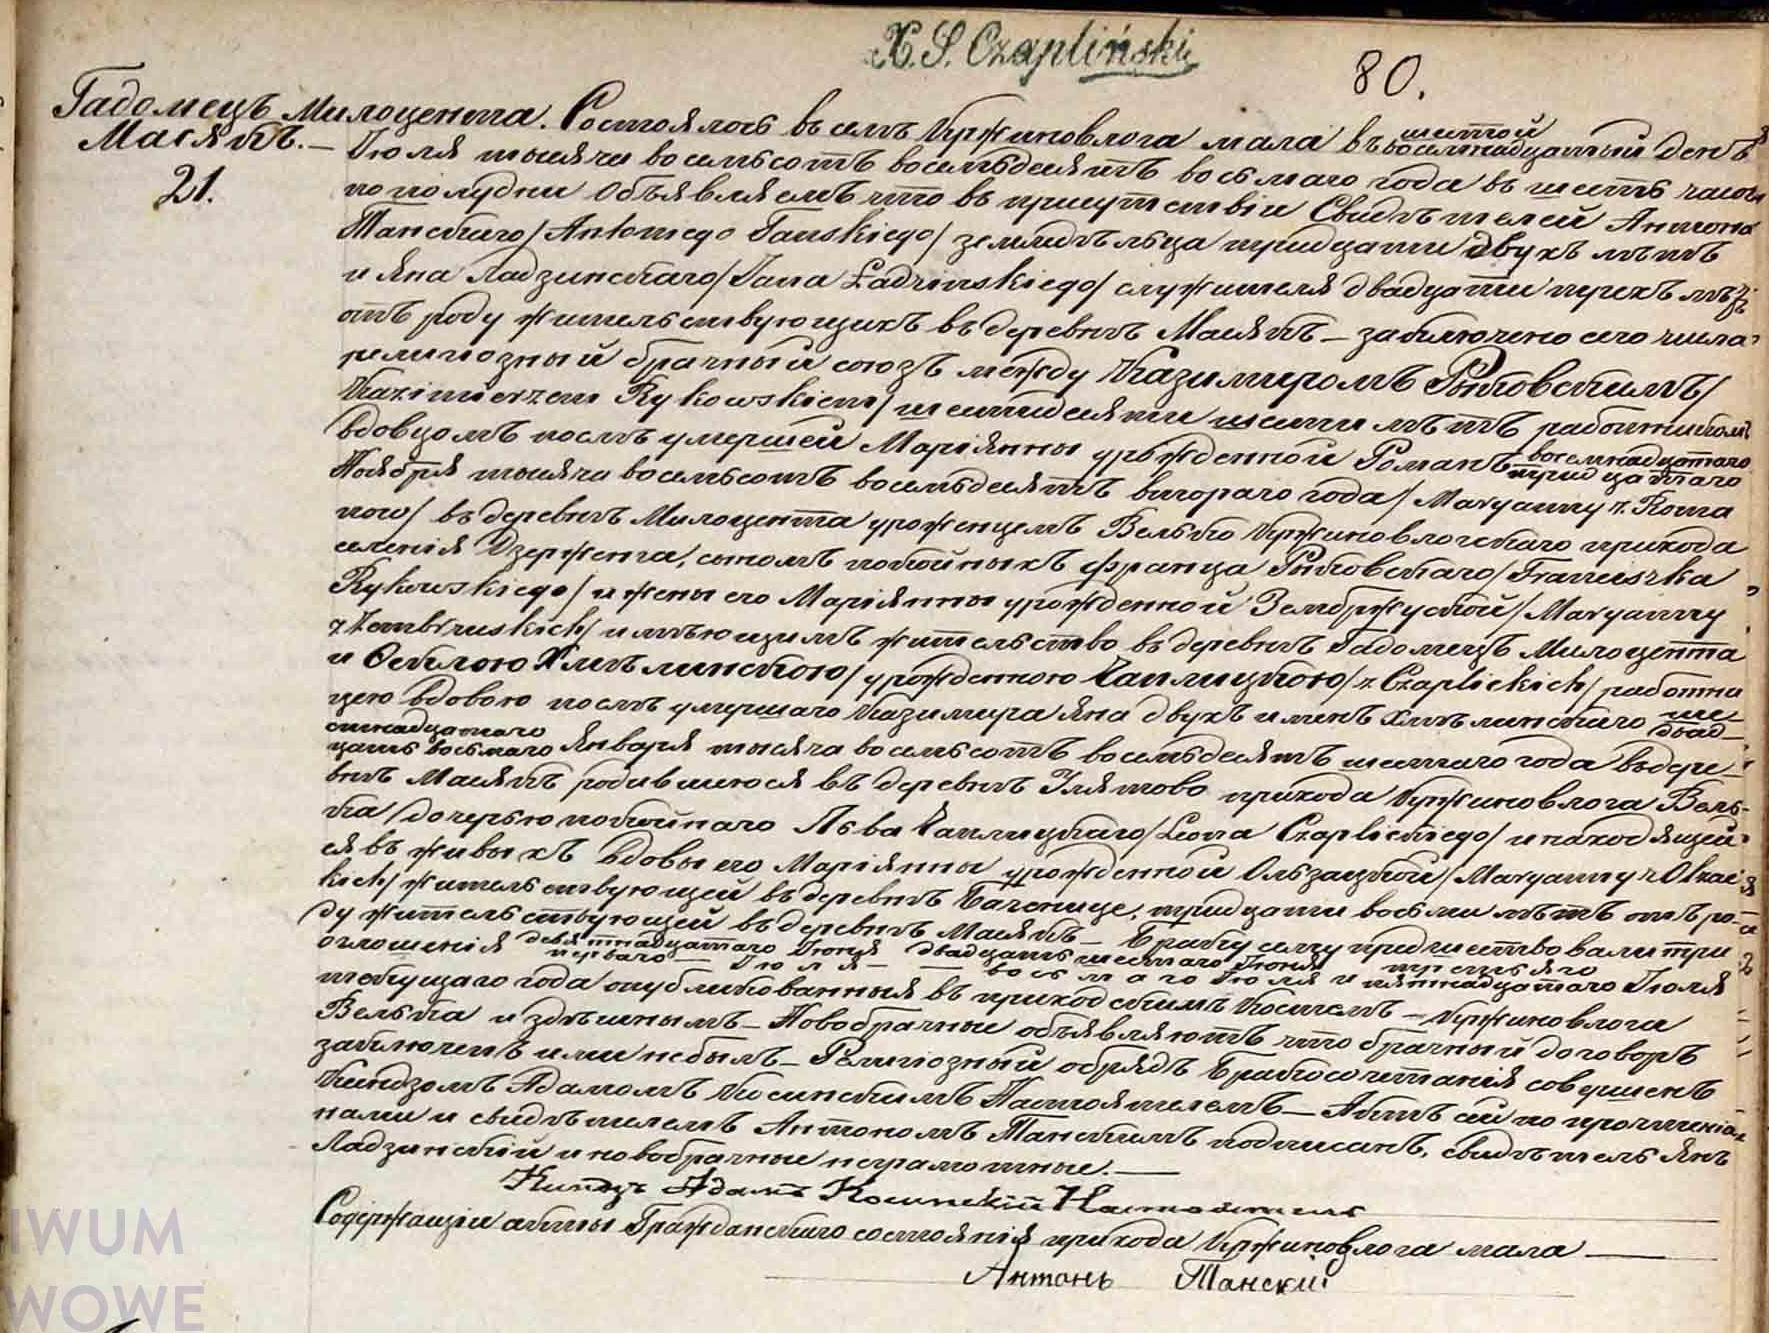 X. S. Czapliński
80.
Гадомецъ Милоцента. Состоялось въ селѣ Кржиновлога мала въ шестой восемнадцатый день
Масякъ. — Іюля тысяча восемьсотъ восемьдесятъ восьмаго года въ шесть часовъ
21. по полудни Объявляемъ что въ присутствіи Свидѣтелей Антона
Танскаго /Antoniego Tańskiego/ земледѣльца тридцати двухъ лѣтъ
и Яна Ладзинскаго /Jana Ładzinskiego/ служителя двадцати трехъ лѣтъ
отъ роду жительствующихъ въ деревнѣ Масякъ — заключено сего числа
религіозный брачный союзъ между Казимиромъ Рыковскимъ/
Kazimierzem Rykowskiem/ шестидесяти шести лѣтъ работникомъ
вдовцомъ послѣ умершей Маріянны урожденной Романъ восемнадцатаго тридцатаго
Ноября тысяча восемьсотъ восемьдесятъ втораго года /Maryanny z Roma
now/ въ деревнѣ Милоцента уроженцемъ Велько Кржиновлогскаго прихода
селенія Дзержента, сыномъ покойныхъ Франца Рыковскаго /Franciszka
Rykowskiego/ и жены его Маріянны урожденной Зембржуской /Maryanny
z Zembrzuskich/ имѣющимъ жительство въ деревнѣ Гадомецъ Милоцента
и Феклою Хмѣлинскою/ урожденною Чаплицкою /z Czaplickich/ работни
цею вдовою послѣ умершаго Казимира Яна двухъ именъ Хмѣлинскаго ше двад
стнадцатаго цать восьмаго Января тысяча восемьсотъ восемьдесятъ шестаго года въ дере
внѣ Масякъ родившеюся въ деревнѣ Улятово прихода Кржиновлога Вель-
ка /дочерью покойнаго Льва Чаплицкаго /Leona Czaplickiego/ и находящей
ся въ живыхъ вдовы его Маріянны урожденной Ользацкой /Maryanny z Olzac
kich/ жительствующей въ деревнѣ Баченице, тридцати восьми лѣтъ отъ ро-
ду жительствующей въ деревнѣ Масякъ — Браку сему предшествовали три
оглашенія девятнадцатаго Іюня двадцать шестаго Іюня третьяго
перваго — Іюля — восьмаго Іюля и пятнадцатаго Іюля
текущаго года опубликованныя въ приходскимъ Костелѣ — Кржиновлоги
Велька и здѣшнымъ — Новобрачные объявляютъ что брачный договоръ
заключенъ ими небылъ — Религіозный обрядъ Бракосочетанія совершенъ
Ксендзомъ Адамомъ Косинскимъ Настоятелемъ — Актъ сей по прочтеніи
нами и свидѣтелемъ Антономъ Танскимъ подписанъ, свидѣтель Янъ
Ладзинскій и новобрачные неграмотные. —
Ксендзъ Адамъ Косинскій Настоятель
Содержащій акты Гражданскаго состоянія прихода Кржиновлога мала —
Антонъ Танскій
IWUM
WOWE